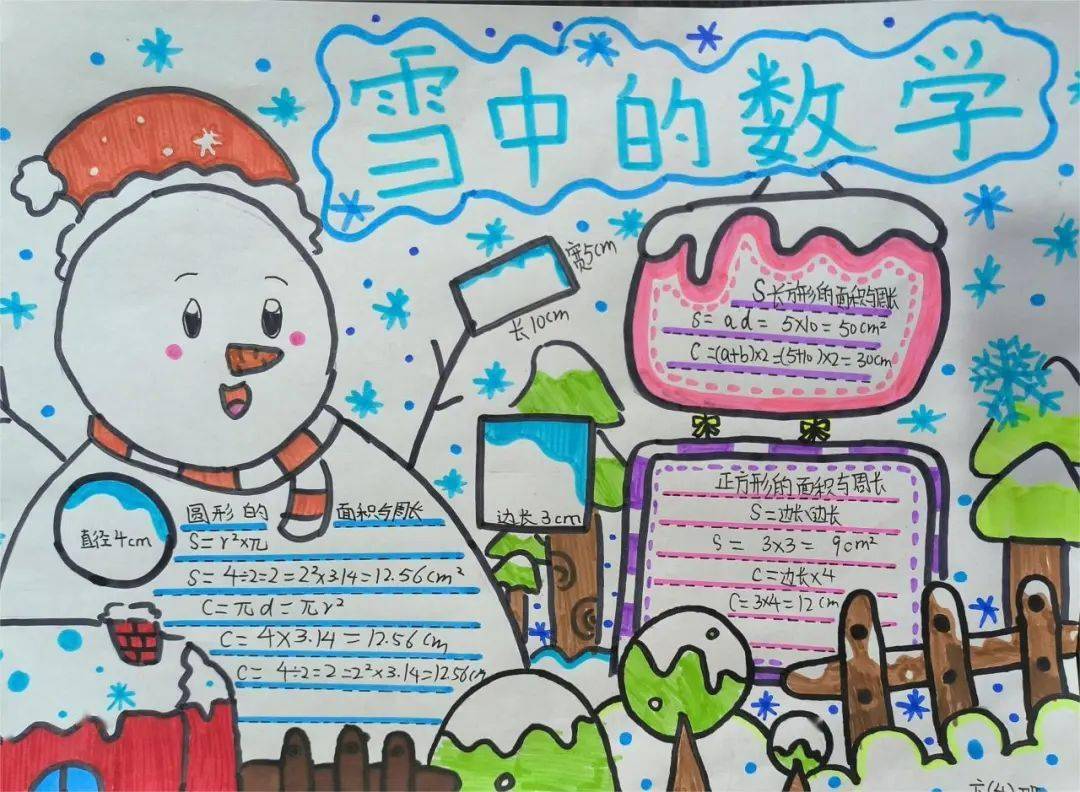 雪中的数学
宽5cm
长10cm
S长方形的面积与周长
S=ad=5×10=50cm²
C=(a+b)×2=(5+10)×2=30cm
边长3cm
正方形的面积与周长
S=边长×边长
S=3×3=9cm²
C=边长×4
C=3×4=12cm
直径4cm
圆形的 面积与周长
S=r²×π
S=4÷2=2=2²×3.14=12.56cm²
C=πd=πr²
C=4×3.14=12.56cm
C=4÷2=2=2²×3.14=12.56cm
六(4)班